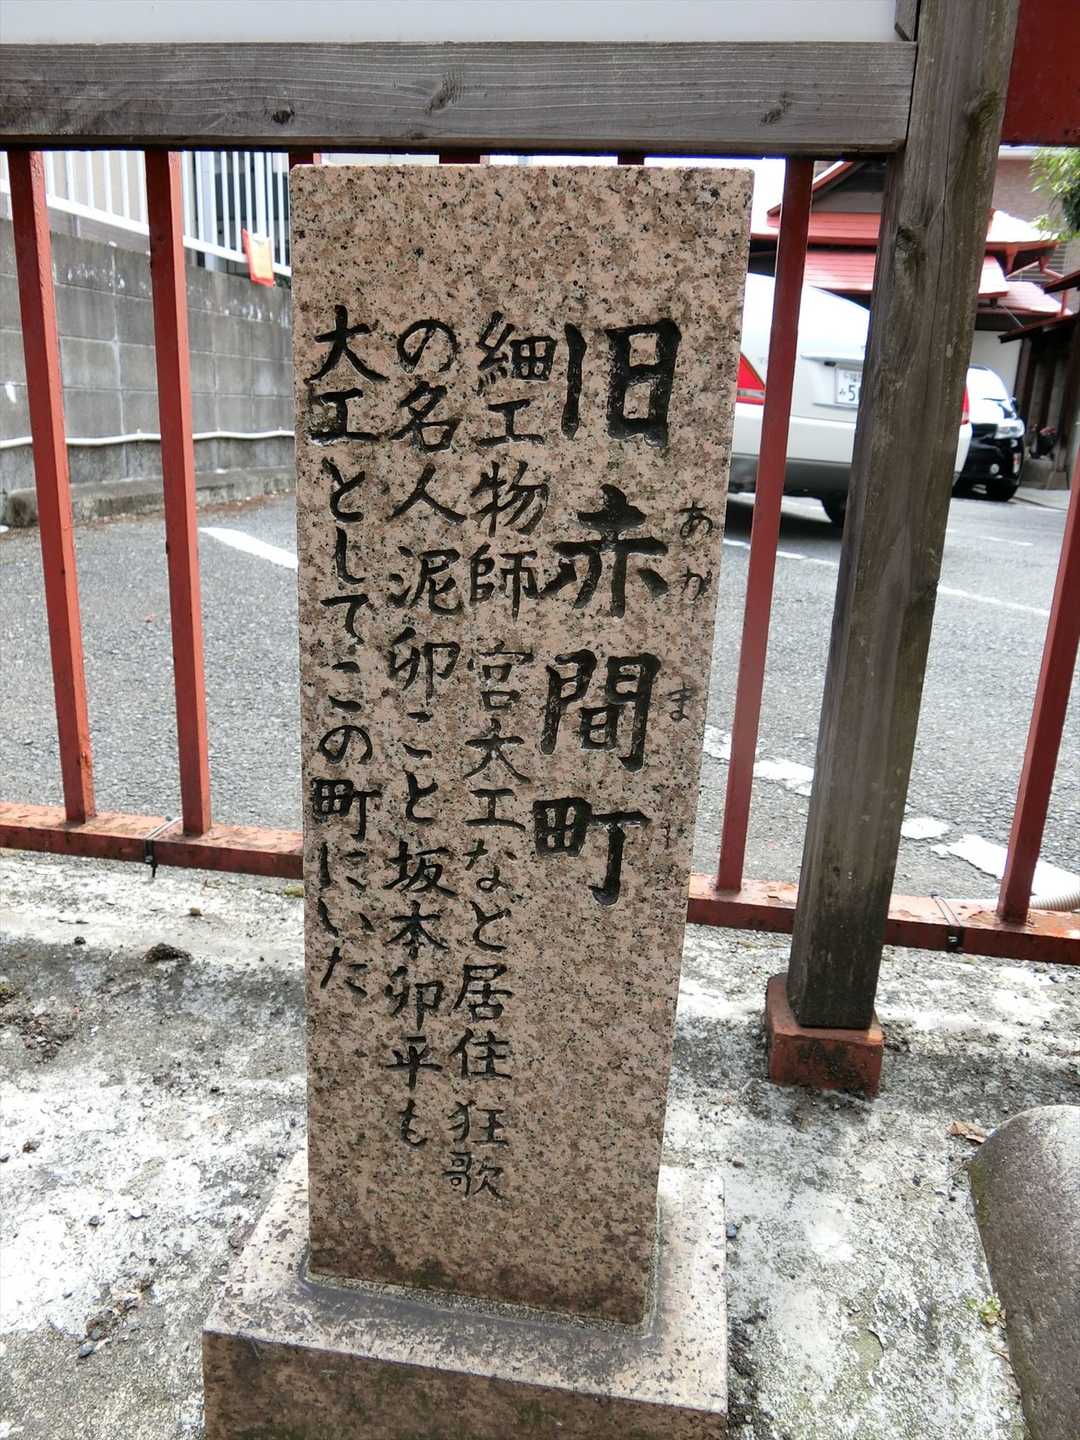 旧赤間町
あかま
細工物師 宮大工など居住 狂歌
の名人泥卯こと坂本卯平も
大工としてこの町にいた